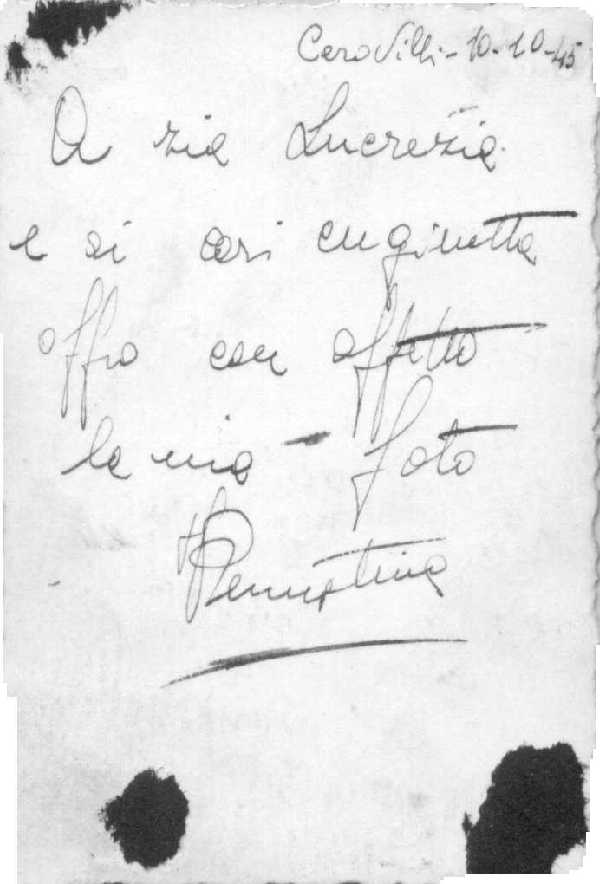 Cerovilli - 10-10-45
A zia Lucrezia
e ai cari cuginetta
offro con affetto
la mia foto